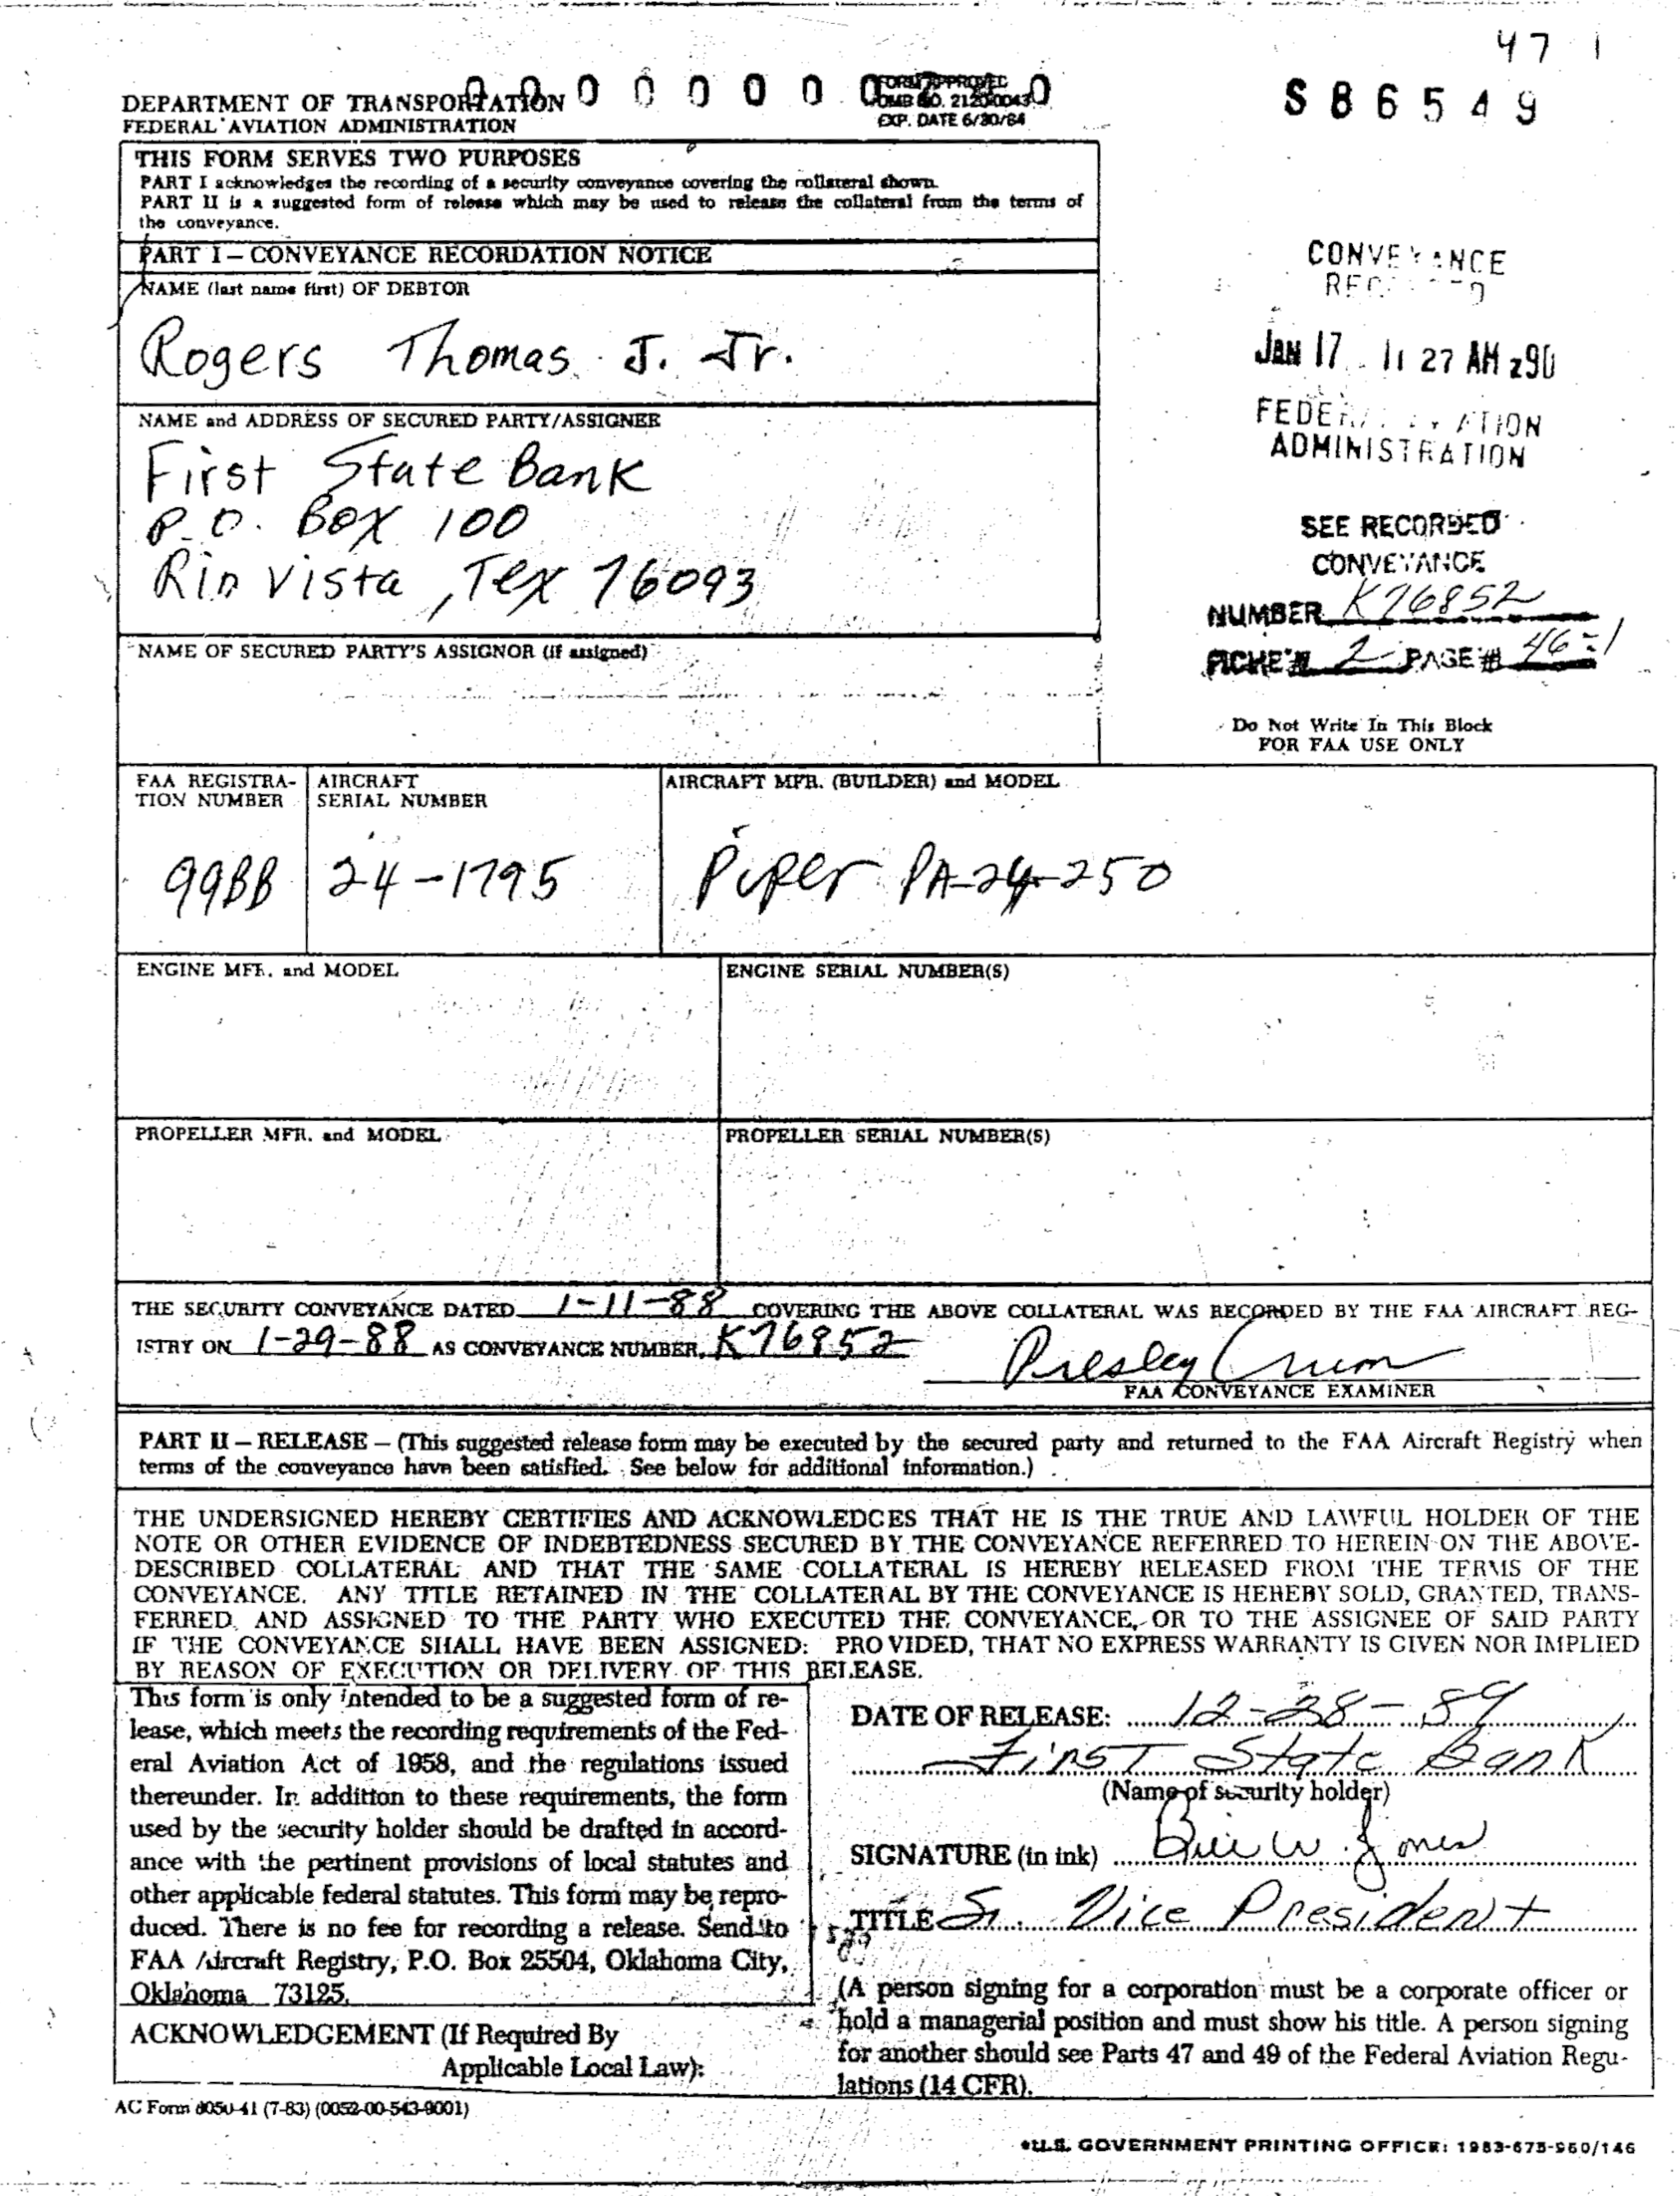 47 1
DEPARTMENT OF TRANSPORTATION
FEDERAL AVIATION ADMINISTRATION
FORM APPROVED
OMB NO. 2120-0043
EXP. DATE 6/30/84
S86549
THIS FORM SERVES TWO PURPOSES
PART I acknowledges the recording of a security conveyance covering the collateral shown.
PART II is a suggested form of release which may be used to release the collateral from the terms of
the conveyance.
PART I – CONVEYANCE RECORDATION NOTICE
NAME (last name first) OF DEBTOR
Rogers Thomas J. Jr.
NAME and ADDRESS OF SECURED PARTY/ASSIGNEE
First State Bank
P.O. Box 100
Rio Vista, Tex 76093
NAME OF SECURED PARTY'S ASSIGNOR (if assigned)
CONVEYANCE
JAN 17 11 27 AM '90
FEDERAL AVIATION
ADMINISTRATION
SEE RECORDED
CONVEYANCE
NUMBER K76852
FICHE # 2 PAGE # 46-1
Do Not Write In This Block
FOR FAA USE ONLY
FAA REGISTRA-
TION NUMBER
99BB
AIRCRAFT
SERIAL NUMBER
24-1795
AIRCRAFT MFR. (BUILDER) and MODEL
Piper PA-24-250
ENGINE MFR. and MODEL
ENGINE SERIAL NUMBER(S)
PROPELLER MFR. and MODEL
PROPELLER SERIAL NUMBER(S)
THE SECURITY CONVEYANCE DATED 1-11-88 COVERING THE ABOVE COLLATERAL WAS RECORDED BY THE FAA AIRCRAFT REG-
ISTRY ON 1-29-88 AS CONVEYANCE NUMBER K76852
Presley Crum
FAA CONVEYANCE EXAMINER
PART II – RELEASE – (This suggested release form may be executed by the secured party and returned to the FAA Aircraft Registry when
terms of the conveyance have been satisfied. See below for additional information.)
THE UNDERSIGNED HEREBY CERTIFIES AND ACKNOWLEDGES THAT HE IS THE TRUE AND LAWFUL HOLDER OF THE
NOTE OR OTHER EVIDENCE OF INDEBTEDNESS SECURED BY THE CONVEYANCE REFERRED TO HEREIN ON THE ABOVE-
DESCRIBED COLLATERAL AND THAT THE SAME COLLATERAL IS HEREBY RELEASED FROM THE TERMS OF THE
CONVEYANCE. ANY TITLE RETAINED IN THE COLLATERAL BY THE CONVEYANCE IS HEREBY SOLD, GRANTED, TRANS-
FERRED, AND ASSIGNED TO THE PARTY WHO EXECUTED THE CONVEYANCE, OR TO THE ASSIGNEE OF SAID PARTY
IF THE CONVEYANCE SHALL HAVE BEEN ASSIGNED: PROVIDED, THAT NO EXPRESS WARRANTY IS GIVEN NOR IMPLIED
BY REASON OF EXECUTION OR DELIVERY OF THIS RELEASE.
This form is only intended to be a suggested form of re-
lease, which meets the recording requirements of the Fed-
eral Aviation Act of 1958, and the regulations issued
thereunder. In addition to these requirements, the form
used by the security holder should be drafted in accord-
ance with the pertinent provisions of local statutes and
other applicable federal statutes. This form may be repro-
duced. There is no fee for recording a release. Send to
FAA Aircraft Registry, P.O. Box 25504, Oklahoma City,
Oklahoma 73125.
ACKNOWLEDGEMENT (If Required By
Applicable Local Law):
DATE OF RELEASE: 12-28-89
First State Bank
(Name of security holder)
SIGNATURE (in ink) Bill W. Jones
TITLE Sr. Vice President
(A person signing for a corporation must be a corporate officer or
hold a managerial position and must show his title. A person signing
for another should see Parts 47 and 49 of the Federal Aviation Regu-
lations (14 CFR).
AC Form 8050-41 (7-83) (0052-00-543-9001)
*U.S. GOVERNMENT PRINTING OFFICE: 1983-673-960/146